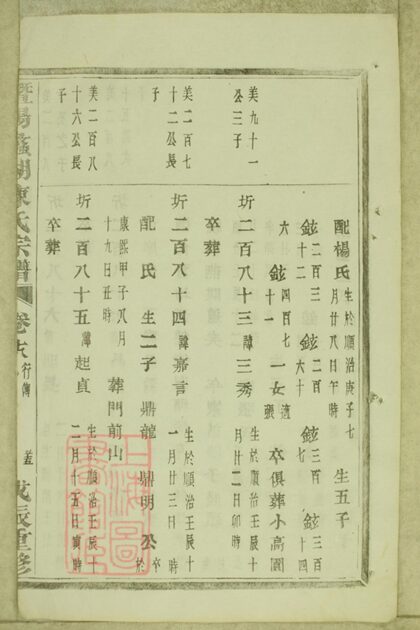 配楊氏 生於順治庚子七月廿八日午時 生五子
鉉二百三十二 鉉二百六十 鉉三百七 鉉三百十四
鉉四百七十一 一女適張 卒俱葬小高園
美九十一公三子
圻二百八十三 諱三秀 生於順治壬辰十月廿二日卯時
卒葬
美二百七十二公長子
圻二百八十四 諱嘉言 生於順治壬辰十一月廿三日 時
配 氏 生二子 鼎龍 鼎明 公卒於
康熙甲子八月十九日丑時 葬門前山
美二百八十六公長子
圻二百八十五 諱起貞 生於順治壬辰十二月十五日寅時
卒葬
暨陽 湖陳氏宗譜 卷 行傳 戊辰重修